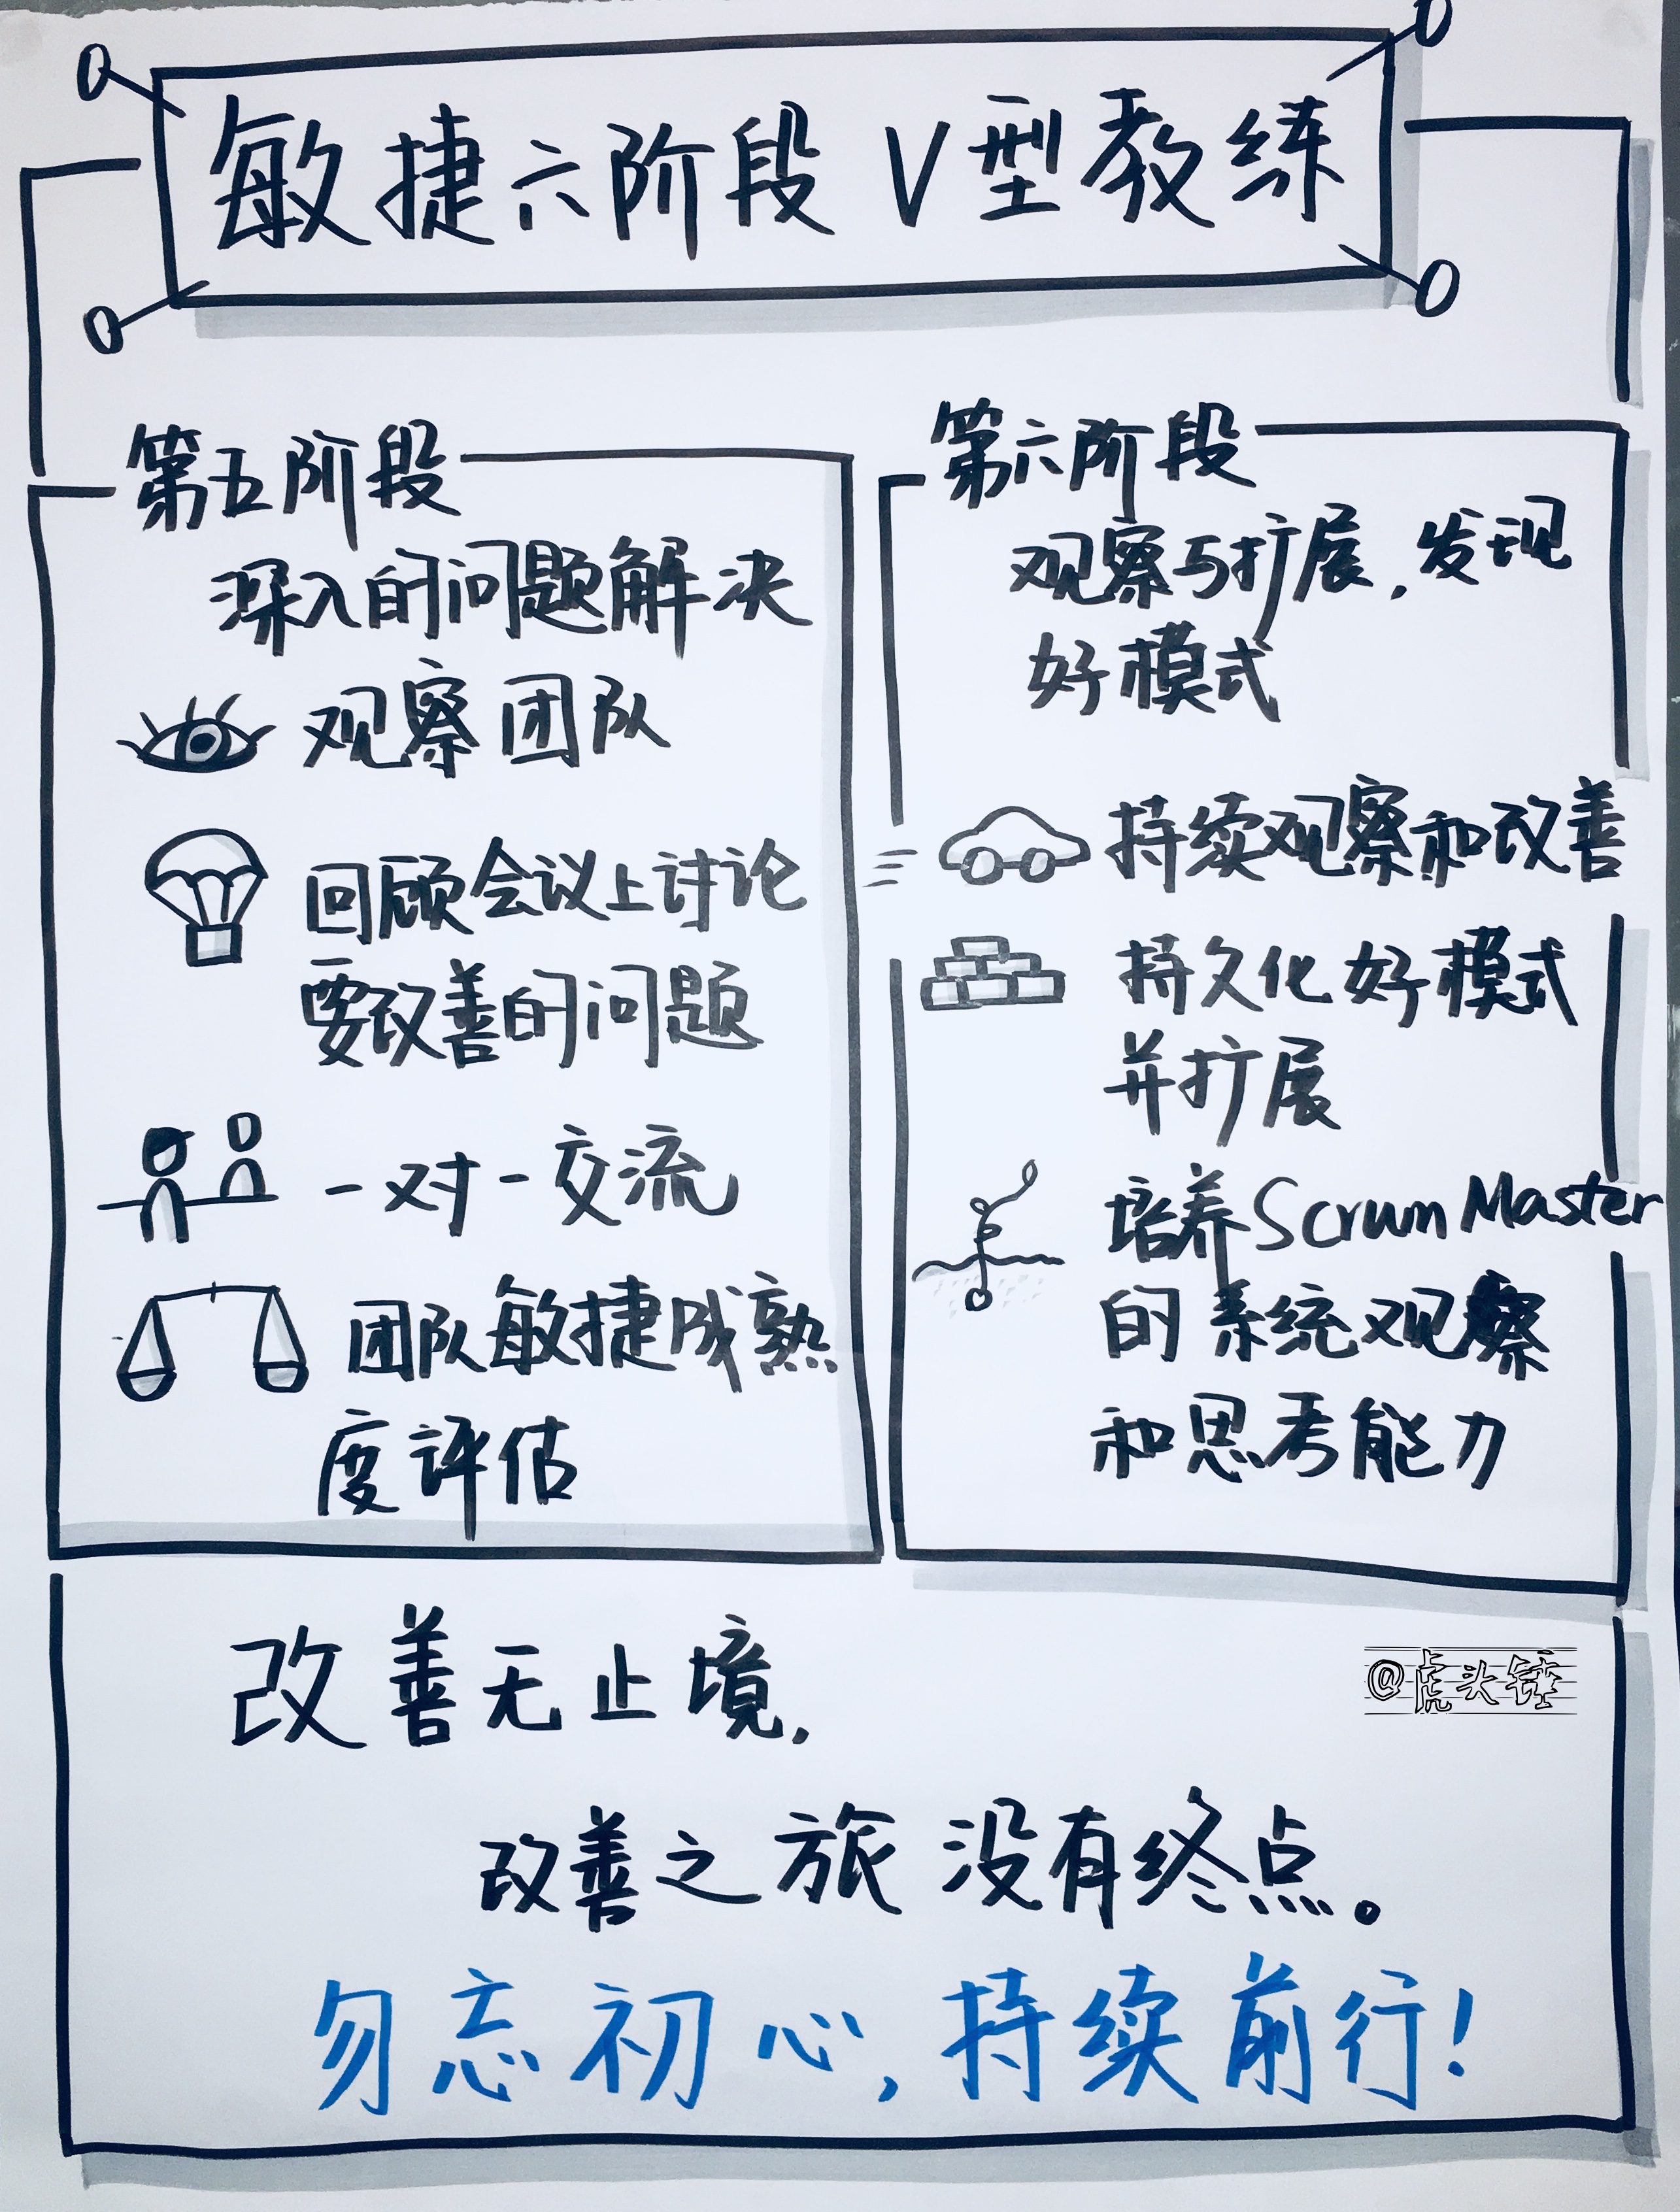 敏捷六阶段 V型教练
第五阶段
深入的问题解决
观察团队
回顾会议上讨论
要改善的问题
一对一交流
团队敏捷成熟
度评估
第六阶段
观察与扩展,发现
好模式
持续观察和改善
持久化好模式
并扩展
培养Scrum Master
的系统观察
和思考能力
改善无止境,
@虎头锤
改善之旅没有终点。
勿忘初心,持续前行!